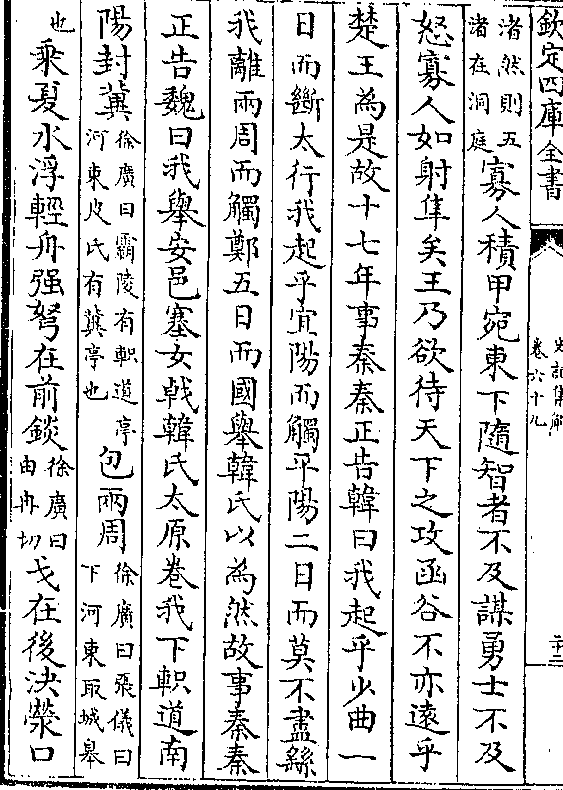 欽定四庫全書
史記集解
卷六十九
二十二
渚然則五
渚在洞庭
寡人積甲宛東下隨智者不及謀勇士不及
怒寡人如射隼矣王乃欲待天下之攻函谷不亦遠乎
楚王為是故十七年事秦秦正告韓曰我起乎少曲一
日而斷太行我起乎宜陽而觸平陽二日而莫不盡繇
我離兩周而觸鄭五日而國舉韓氏以為然故事秦秦
正告魏曰我舉安邑塞女戟韓氏太原卷我下軹道南
陽封冀
徐廣曰霸陵有軹道亭
河東皮氏有冀亭也
包兩周
徐廣曰張儀曰
下河東取城皋
也
乘夏水浮輕舟强弩在前錟
徐廣曰
由冉切
戈在後決滎口